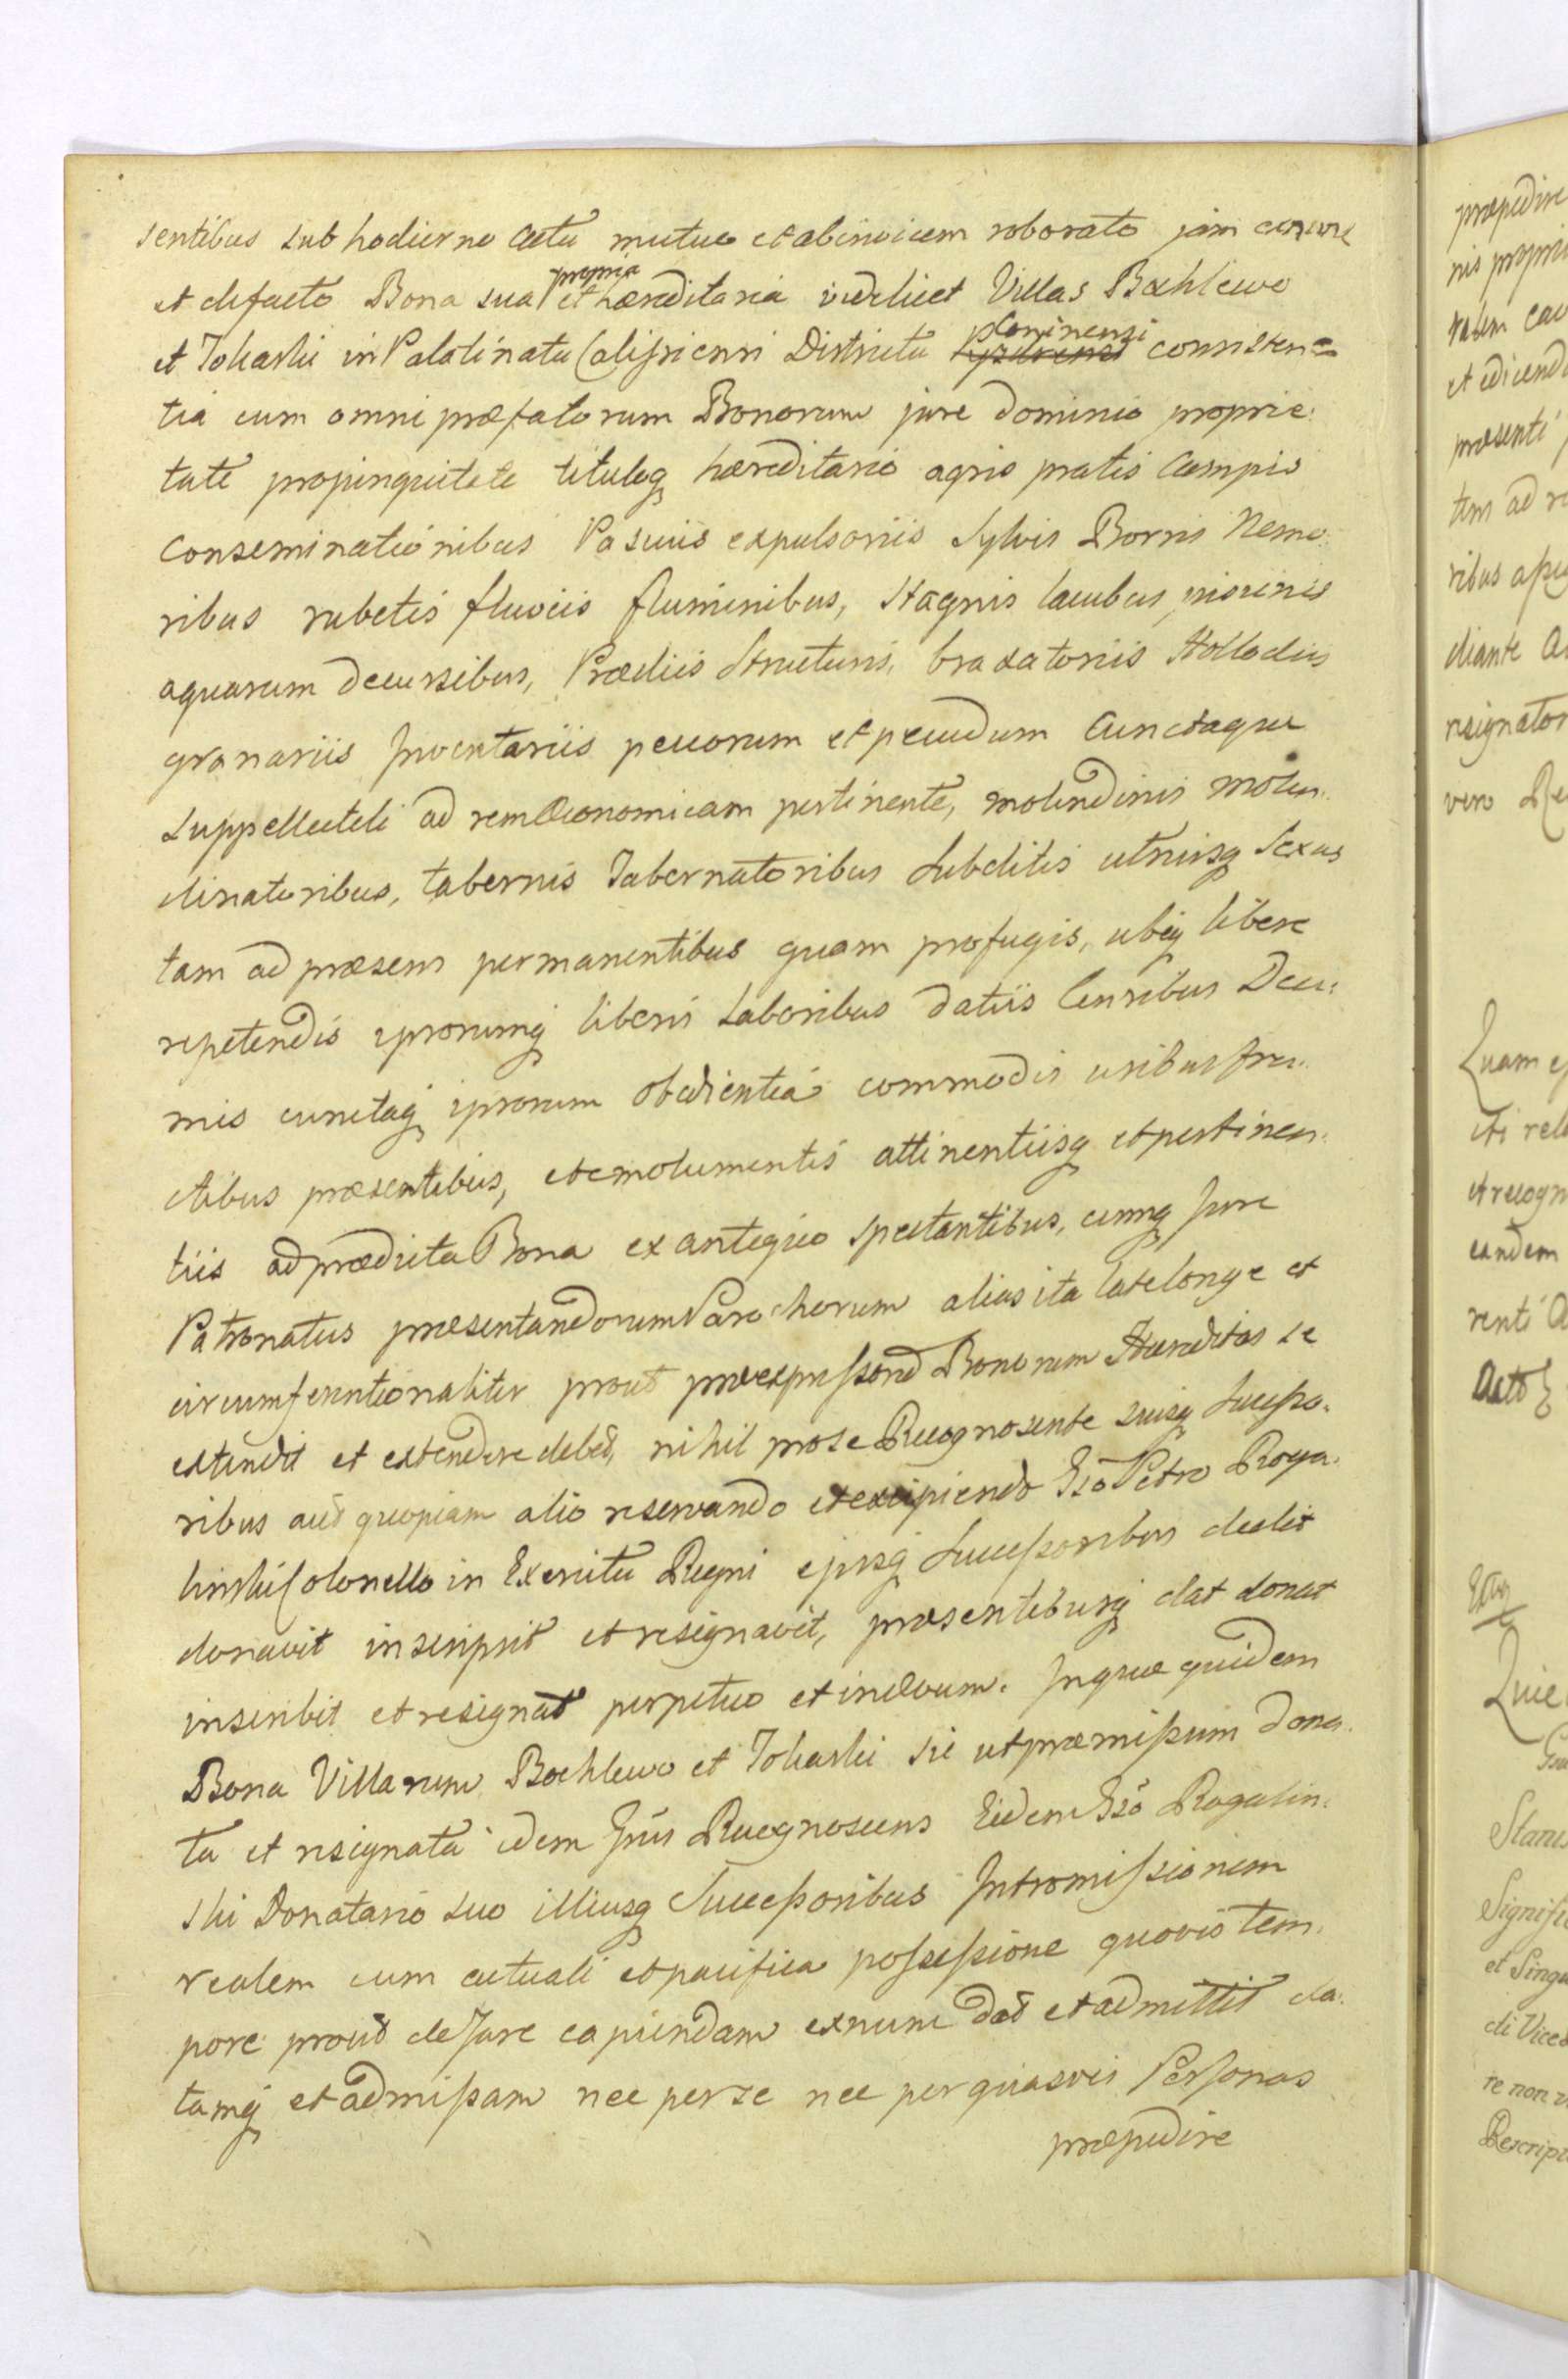 sentibus sub hodierno actu mutuo et abinvicem roborato jam exnunc
et defacto Bona sua propria et hæreditaria videlicet Villas Bochlewo
et Tokarki in Palatinatu Calissiensi Districtu Coninensi consisten=
tia cum omni præfatorum Bonorum jure dominio proprie:
tate propinquitate tituloq hæreditario agris pratis Campis
Conseminationibus Pascuis expulsoriis Sylvis Borris Nemo:
ribus rubetis fluviis fluminibus, Stagnis lacubus, piscinis
aquarum decursibus, Prædiis Structuris, braxatoriis Hollodiis
granariis Inventariis pecorum et pecudum Cunctaque
Suppellectili ad rem Œconomicam pertinente, molendinis molen:
dinatoribus, tabernis Tabernatoribus Subditis utriusq Sexus
tam ad præsens permanentibus quam profugis, ubiq libere
repetendis ipsorumq liberis Laboribus datiis Censibus Deci:
mis cunctaq ipsorum obedientia commodis usibus fru:
ctibus præsentibus, et emolumentis attinentiisq et pertinen:
tiis ad prædicta Bona ex antiquo spectantibus, cumq Jure
Patronatus præsentandorum Parochorum alias ita late longe et
circumferentionaliter prout præexpressorum Bonorum Hæreditas se
extendit et extendere debet, nihil pro se Recognoscente suisq Successo:
ribus aut quopiam alio reservando et excipiendo Gso Petro Roga:
linski Colonello in Exercitu Regni ejusq Successoribus dedit
donavit inscripsit et resignavit, præsentibusq dat donat
inscribit et resignat perpetuo et in ævum. In quæ quidem
Bona Villarum Bochlewo et Tokarki sic ut præmissum dona:
ta et resignata idem Gnus Recognoscens Eidem Gso Rogalin:
ski Donatario suo illiusq Successoribus Intromissionem
realem cum actuali et pacifica possessione quovis tem:
pore prout de Jure capiendam exnunc dat et admittit da:
tamq et admissam nec per se nec per quasvis Personas
præpedire